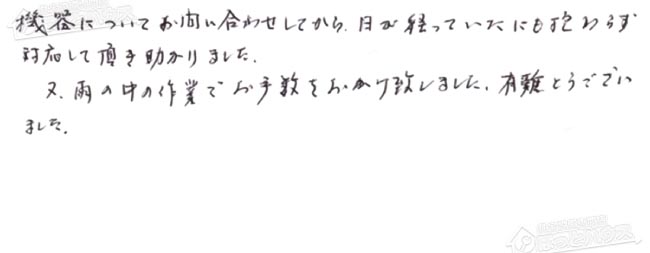 機器についてお問い合わせしてから、日が経っていたにも拘わらず
対応して頂き助かりました。
又、雨の中の作業でお手数をおかけ致しました。有難とうでござい
ました。